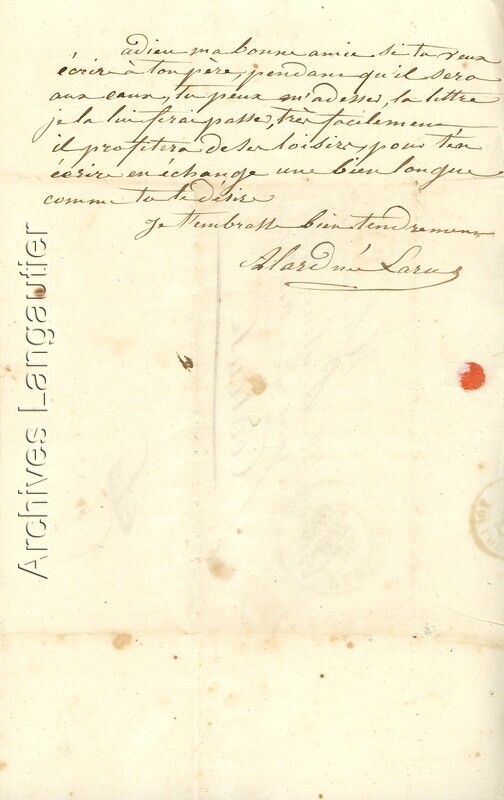 adieu ma bonne amie si tu veux
écrire à ton père, pendant qu'il sera
aux eaux, tu peux m'adesser, la lettre
je la lui ferai passer, très facilement
il profitera de ses loisirs, pour t'en
écrire en échange une bien longue
comme tu le désire
Je t'embrasse bien tendrement
Alard née Larue
Archives Langautier